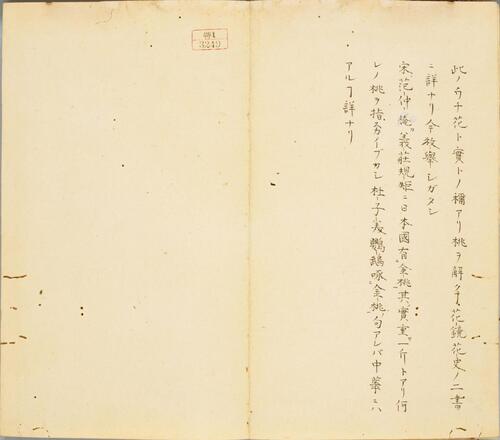 此ノウチ花ト實トノ稱アリ桃ヲ解クヿ花鏡花史ノ二書
ニ詳ナリ今枚舉シガタシ
宋范仲淹義莊規矩ニ日本國有金桃其實重一斤トアリ何
レノ桃ヲ指スカイブカシ杜子美鸚鵡啄金桃ノ句アレバ中華ニハ
アルヿ詳ナリ
特1
3249